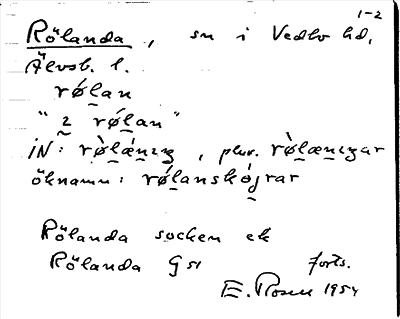 1-2
Rölanda, sn i Vedbo hd,
Älvsb. l.
rǿlan
"2 rǿlan"
IN: rø̀lǽnıŋ, plur. rø̀lænıŋar
öknamn: rǿlanskójrar
Rölanda socken ek
Rölanda Gs1 forts.
E. Rosell 1954